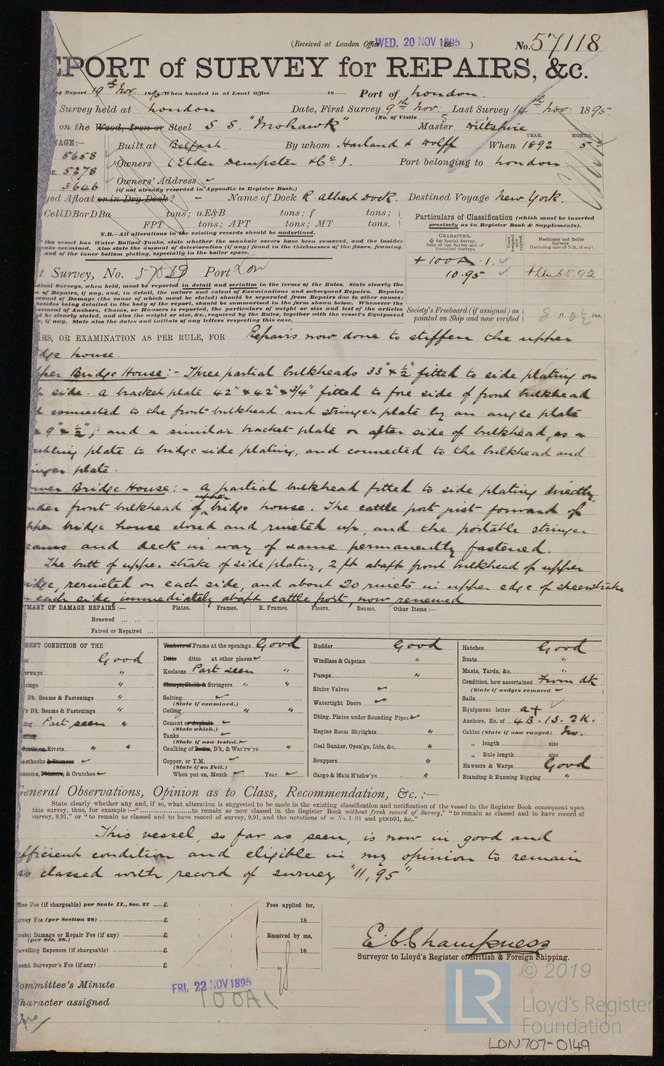 (Received at London Office WED. 20 NOV 1895 18 ) No. 57118
EPORT of SURVEY for REPAIRS, &c.
ng Report 19th Nov. 1895 When handed in at Local Office 18 Port of London
Survey held at London Date, First Survey 9th Nov. Last Survey 14th Nov. 1895
(No. of Visits 5
on the Wood, Iron or Steel S S "Mohawk" Master Wiltshire
YEAR. MONTH.
NAGE:— Built at Belfast By whom Harland & Wolff When 1892 5
5658
5278 Owners Elder Dempster & Co Port belonging to London
3646 Owners' Address
(if not already recorded in Appendix to Register Book.)
yed Afloat or in Dry Dock? Name of Dock R. Albert Dock. Destined Voyage New York.
Cell.DBorDBa tons; uE&B tons; f tons;
FPT tons; APT tons; MT tons.
Particulars of Classification (which must be inserted
precisely as in Register Book & Supplements).
N.B.—All alterations in the existing records should be underlined.
the vessel has Water Ballast Tanks, state whether the manhole covers have been removed, and the insides
examined. Also state the amount of deterioration (if any) found in the thicknesses of the floors, framing,
and of the inner bottom plating, especially in the boiler space.
CHARACTER.
Machinery and Boiler
Surveys
+100A.1.
10.95
t Survey, No. 57019 Port Lon
Society's Freeboard (if assigned) as
painted on Ship and now verified
RS, OR EXAMINATION AS PER RULE, FOR Repairs now done to stiffen the upper
dge house.
per Bridge House:- Three partial bulkheads 33" x ½" fitted to side plating on
side. A bracket plate 42" x 42" x ¾" fitted to fore side of front bulkhead
d connected to the front bulkhead and stringer plate by an angle plate
x 9" x ½"; and a similar bracket plate on after side of bulkhead, as a
plate to bridge side plating, and connected to the bulkhead and
inger plate.
wer Bridge House:- A partial bulkhead fitted to side plating directly
nder front bulkhead of upper bridge house. The cattle port just forward of
pper bridge house closed and riveted up, and the portable stringer
eams and deck in way of same permanently fastened.
The butt of upper strake of side plating, 2 ft abaft front bulkhead of upper
idge, reriveted on each side, and about 20 rivets in upper edge of sheerstrake
n each side immediately abaft cattle port, now renewed
MARY OF DAMAGE REPAIRS:— Plates. Frames. R. Frames. Floors. Beams. Other Items:—
Renewed
Faired or Repaired
SENT CONDITION OF THE
Good
Dk. Beams & Fastenings "
r Dk. Beams & Fastenings "
Part seen "
Rivets " "
& Crutches
Timbers or Frame at the openings Good
Ditto ditto at other places
Keelsons Part seen "
Stringers " "
Salting
(State if examined.)
Ceiling "
Cement or Asphalt
(State which.)
Tanks
(State if now tested.)
Caulking of Decks, D'k, & Wat'rw'ys "
Copper, or Y.M.
(State if on Felt.)
When put on, Month Year
Rudder Good
Windlass & Capstan "
Pumps "
Sluice Valves
Watertight Doors
Dbling. Plates under Sounding Pipes
Engine Room Skylights "
Coal Bunker, Open'gs, Lids, &c. "
Scuppers "
Cargo & Main H'tchw'ys "
Hatches Good
Boats "
Masts, Yards, &c. "
Condition, how ascertained From dk
(State if wedges removed
Sails
Equipment letter a+
Anchors, No. of 4B. 1S. 2K.
Cables (State if now ranged) No.
" length size
" Rule length size
Hawsers & Warps Good
Standing & Running Rigging "
General Observations, Opinion as to Class, Recommendation, &c.:—
State clearly whether any and, if so, what alteration is suggested to be made in the existing classification and notification of the vessel in the Register Book consequent upon
this survey, thus, for example:—"to remain as now classed in the Register Book without fresh record of Survey," "to remain as classed and to have record of
survey, 9,91," or "to remain as classed and to have record of survey, 9,91, and the notations of
This vessel, so far as seen, is now in good and
efficient condition and eligible in my opinion to remain
as classed with record of survey "11,95"
ffice Fee (if chargeable) per Scale II., Sec. 27 £ Fees applied for,
urvey Fee (per Section 28) £ 18
pecial Damage or Repair Fee (if any) £ Received by me,
(per Sec. 28.)
avelling Expenses (if chargeable) £ 18
econd Surveyor's Fee (if any) £
E.C. Champness
Surveyor to Lloyd's Register of British & Foreign Shipping.
ommittee's Minute FRI. 22 NOV 1895
haracter assigned 100A1
LR
© 2019
Lloyd's Register
Foundation
LDN707-0149